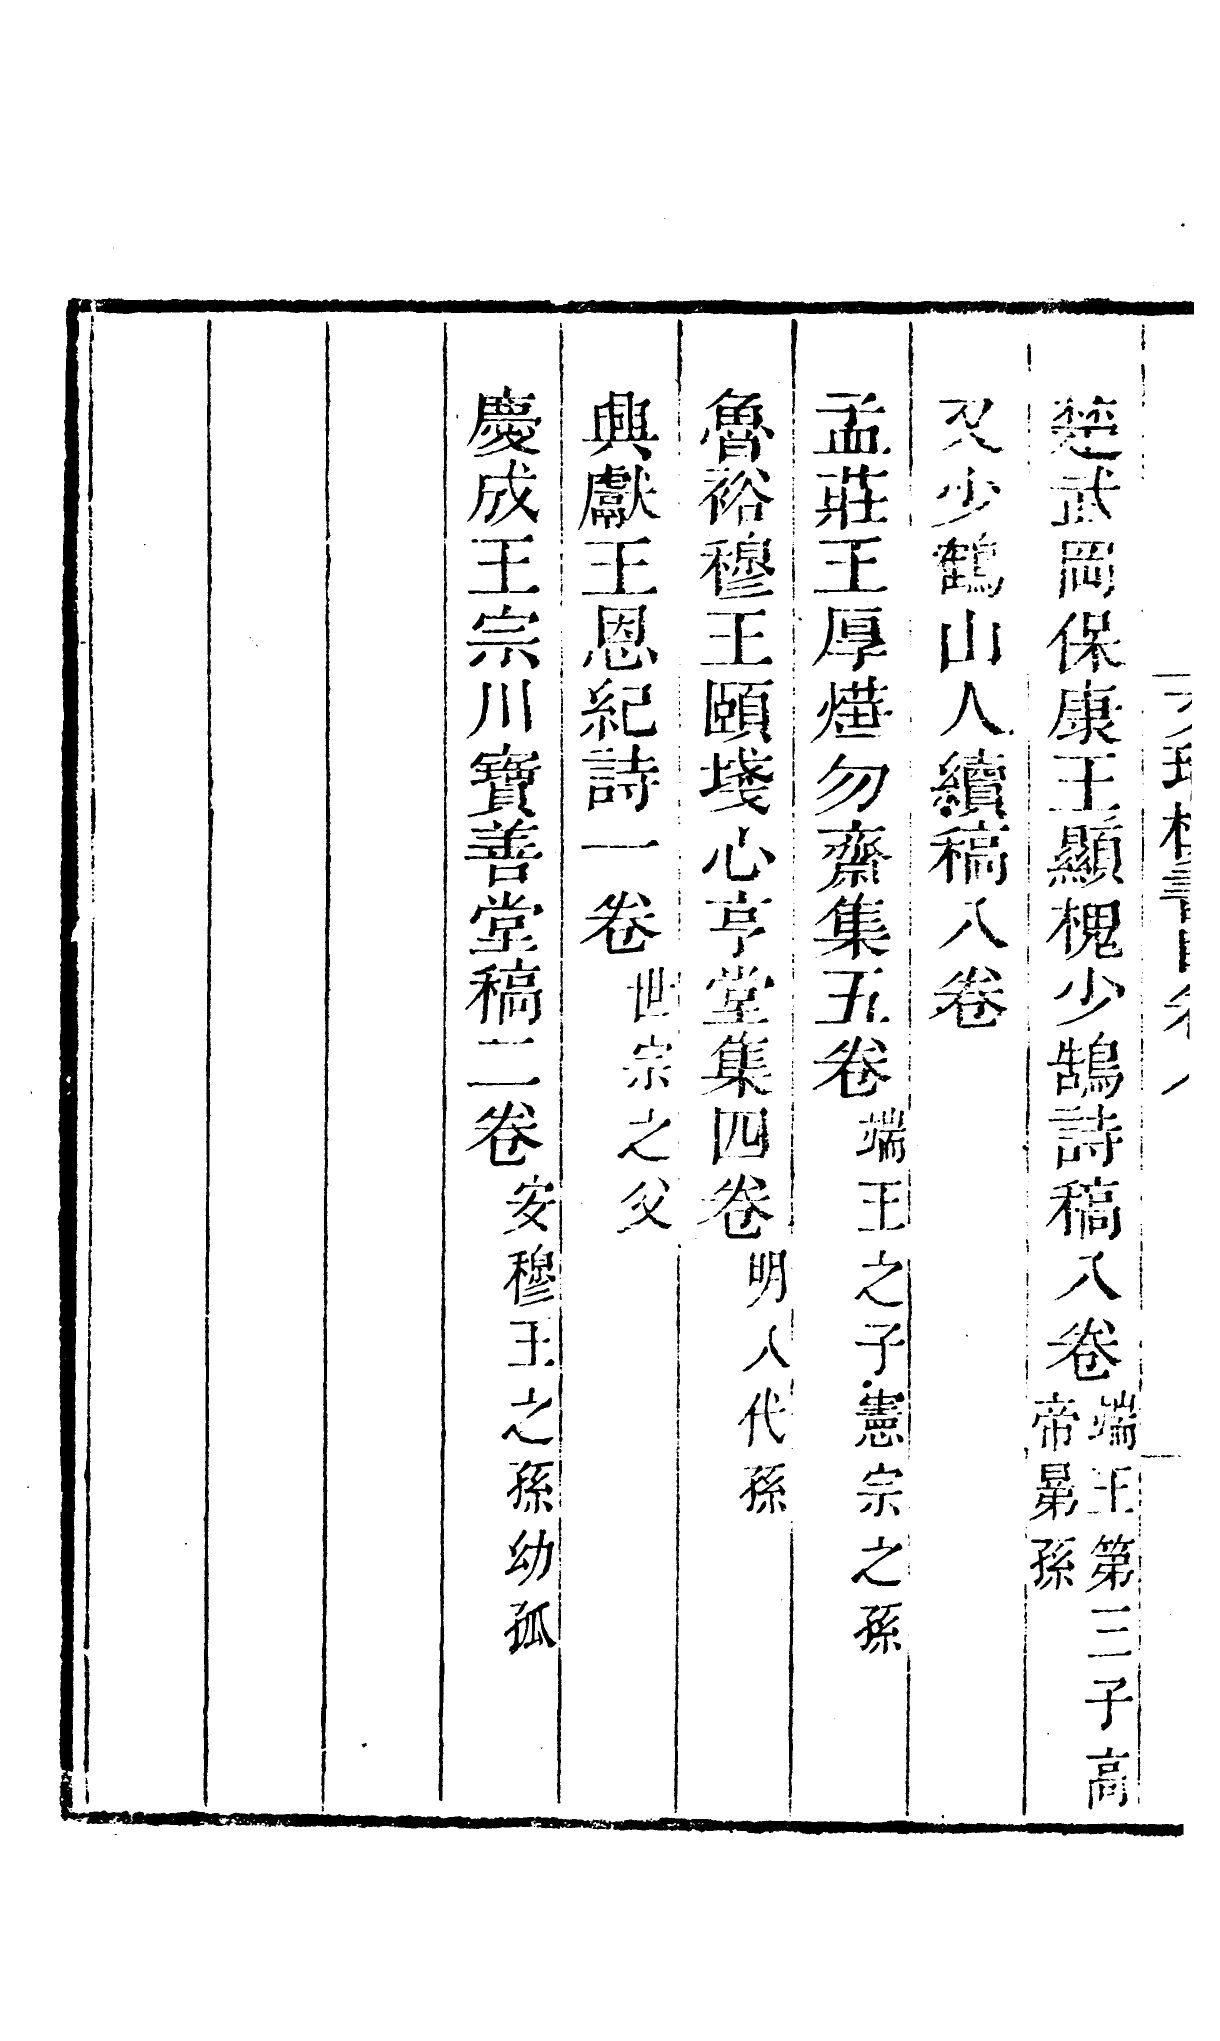 楚武岡保康王顯槐少鵠詩稿八卷端王第三子高帝曩孫
又少鶴山人續稿八卷
孟莊王厚燁勿齋集五卷端王之子憲宗之孫
魯裕穆王頤堟心亨堂集四卷明八代孫
興獻王恩紀詩一卷世宗之父
慶成王宗川寶善堂稿二卷安穆王之孫幼孤